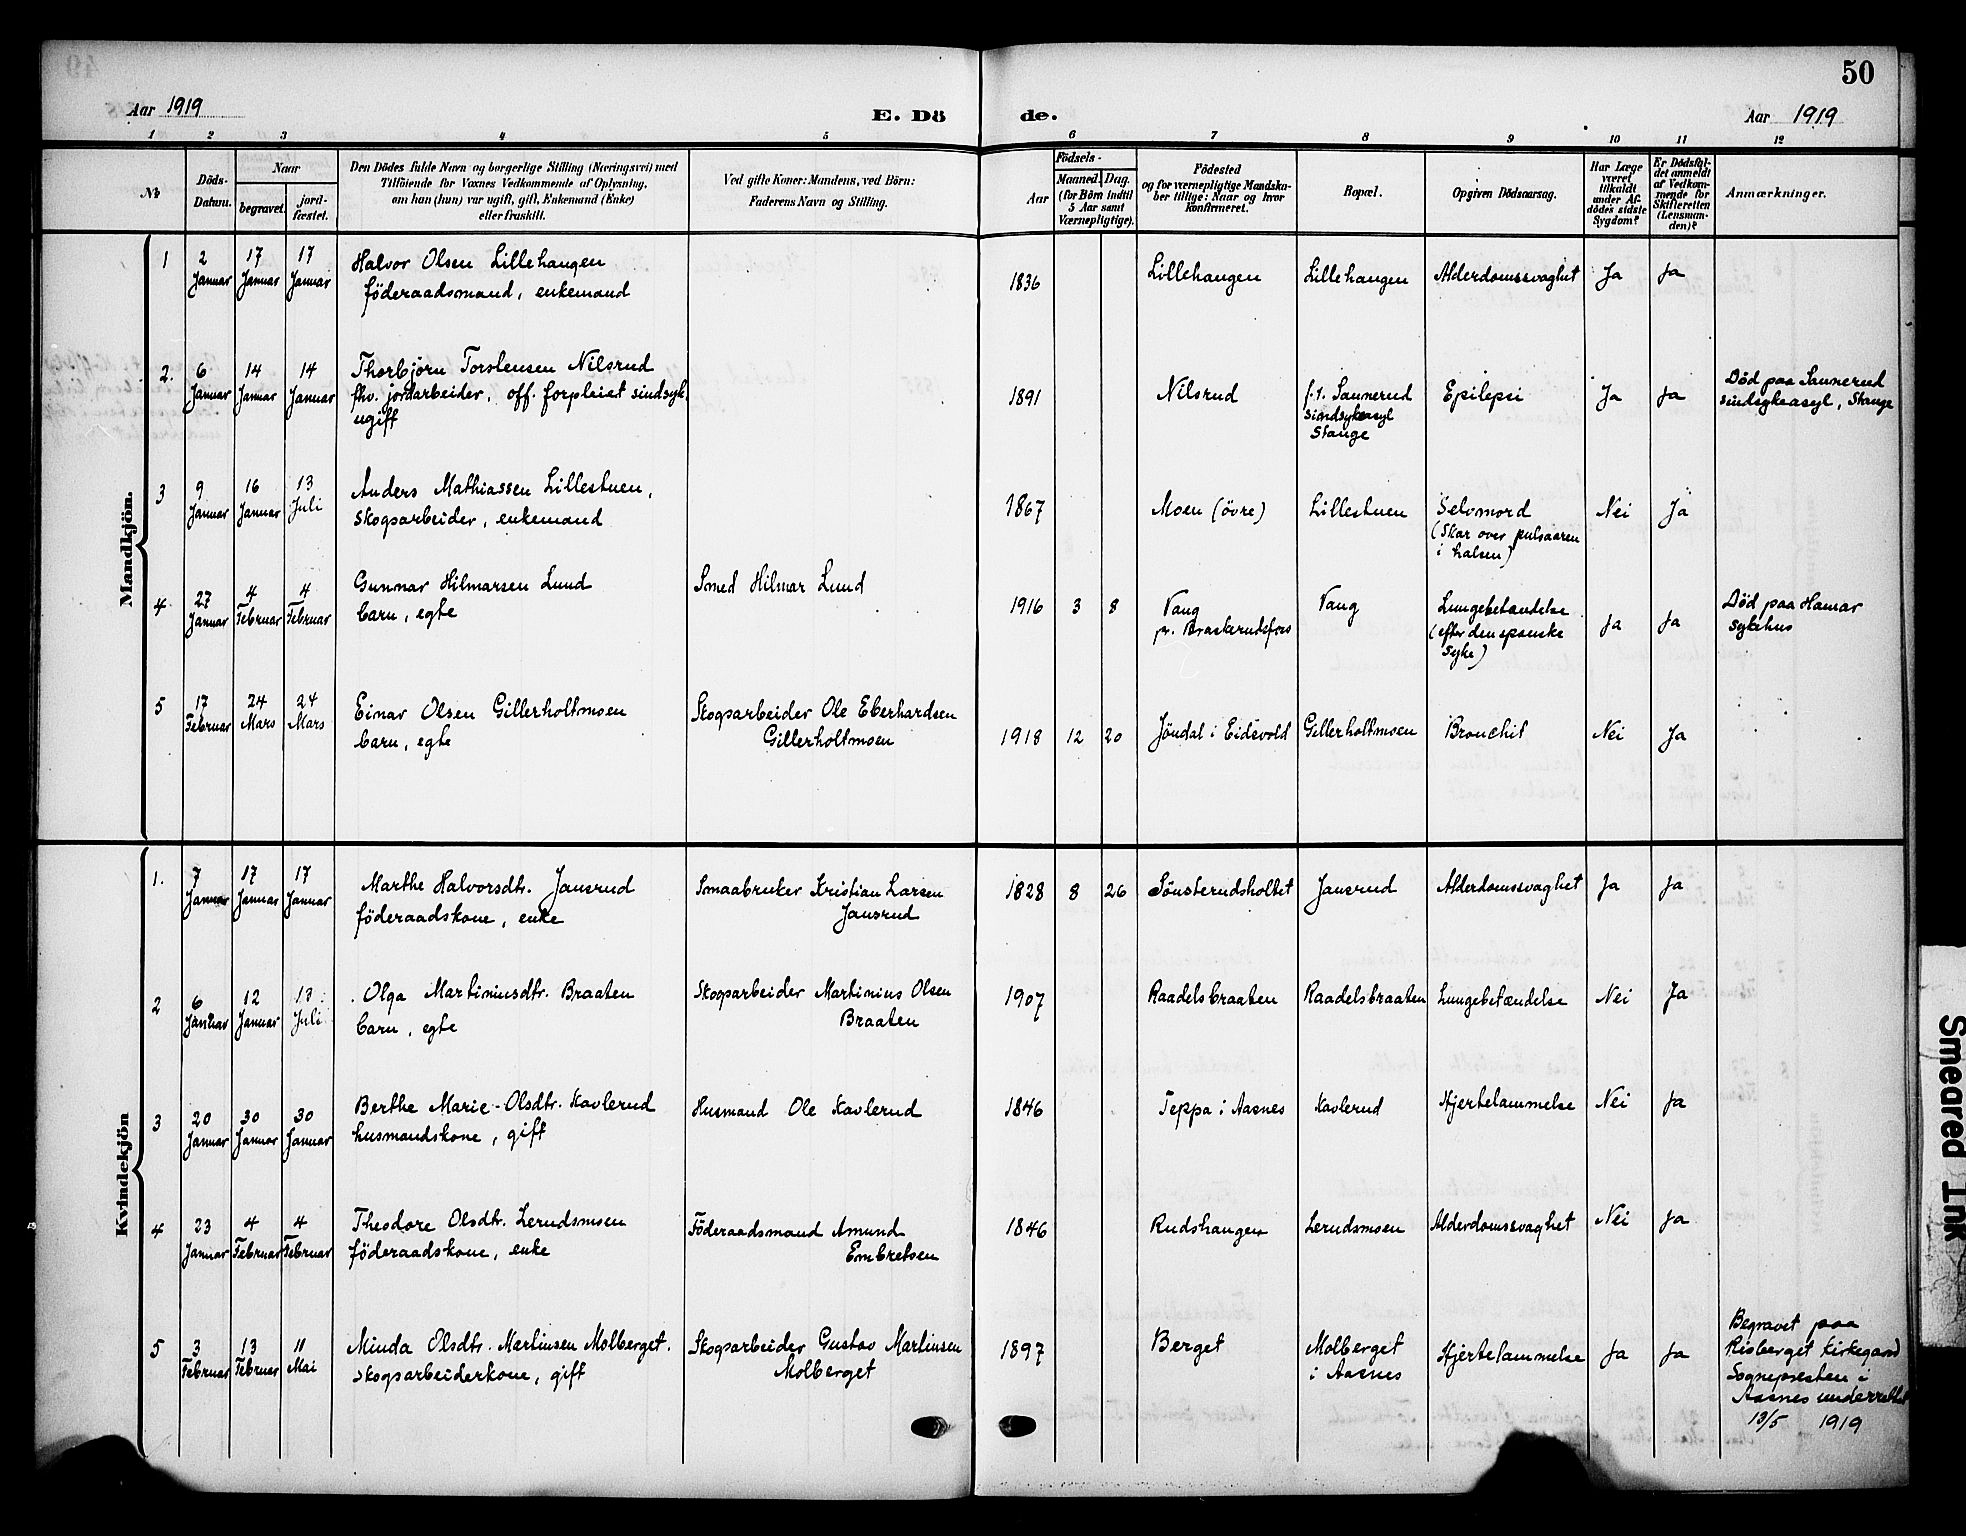 50
Aar 1919
E. Dö
de.
Aar 1919
1 2 3 4 5 6 7 8 9 10 11 12
№
Döds-
Datum.
Naar
begravet.
jord-
fæstet.
Den Dödes fulde Navn og borgerlige Stilling (Næringsvei) med
Tilföiende for Voxnes Vedkommende af Oplysning,
om han (hun) var ugift, gift, Enkemand (Enke)
eller fraskilt.
Ved gifte Koner: Mandens, ved Börn:
Faderens Navn og Stilling.
Födsels-
Aar
Maaned.
Dag.
(for Börn indtil
5 Aar samt
Værnepligtige).
Födested
og for værnepligtige Mandska-
ber tillige: Naar og hvor
konfirmeret.
Bopæl.
Opgiven Dödsaarsag.
Har Læge
været
tilkaldt
under Af-
dödes sidste
Sygdom?
Er Dödsfal-
det anmeldt
af Vedkom-
mende for
Skifteretten
(Lensman-
den)?
Anmærkninger.
Mandkjön.
1 2 Januar 17 Januar 17 Januar
Halvor Olsen Lillehaugen
föderaadsmand, enkemand
1836 Lillehaugen Lillehaugen Alderdomssvaghet Ja Ja
2. 6 Januar 14 Januar 14 Januar
Thorbjörn Torstensen Nilsrud
fhv. jordarbeider, off. forpleiet sindsyk,
ugift
1891 Nilsrud
f.t. Sannerud
sindsykeasyl
Stange
Epilepsi Ja Ja
Död paa Sannerud
sindsykeasyl, Stange
3 9 Januar 16 Januar 13 Juli
Anders Mathiassen Lillestuen,
skogsarbeider, enkemand
1867 Moen (övre) Lillestuen
Selvmord
(skar over pulsaaren
i halsen)
Nei Ja
4 27 Januar 4 Februar 4 Februar
Gunnar Hilmarsen Lund
barn, egte
Smed Hilmar Lund
1916 3 8
Vang
pr. Braskerudsfoss
Vang
Lungebetændelse
(efter den spanske
syke)
Ja Ja
Död paa Hamar
sykehus
5 17 Februar 24 Mars 24 Mars
Einar Olsen Gillerholtmoen
barn, egte
Skogsarbeider Ole Eberhardsen
Gillerholtmoen
1918 12 20 Jöndal i Eidsvold Gillerholtmoen Bronchit Nei Ja
Kvindekjön
1. 7 Januar 17 Januar 17 Januar
Marthe Halvorsdtr. Jansrud
föderaadskone, enke
Smaabruker Kristian Larsen
Jansrud
1828 8 26 Sönsterudsholtet Jansrud Alderdomssvaghet Ja Ja
2 6 Januar 12 Januar 13 Juli
Olga Martiniusdtr. Braaten
barn, egte
Skogsarbeider Martinius Olsen
Braaten
1907 Raadelsbraaten Raadelsbraaten Lungebetændelse Nei Ja
3 20 Januar 30 Januar 30 Januar
Berthe Marie Olsdtr. Kavlerud
husmandskone, gift
Husmand Ole Kavlerud
1846 Teppa i Aasnes Kavlerud Hjertelammelse Nei Ja
4 23 Januar 4 Februar 4 Februar
Theodore Olsdtr. Lerudsmoen
föderaadskone, enke
Föderaadsmand Amund
Embretsen
1846 Rudshaugen Lerudsmoen Alderdomssvaghet Nei Ja
5 3 Februar 13 Februar 11 Mai
Minda Olsdtr. Martinsen Molberget.
skogsarbeiderkone, gift
Skogsarbeider Gustav Martinsen
Molberget
1897 Berget
Molberget
i Aasnes
Hjertelammelse Ja Ja
Begravet paa
Risberget kirkegaard
Sognepresten i
Aasnes underrettet
13/5 1919
Smeared Ink